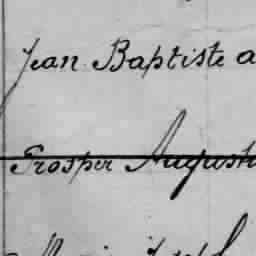 Jean Baptiste a
Prosper August